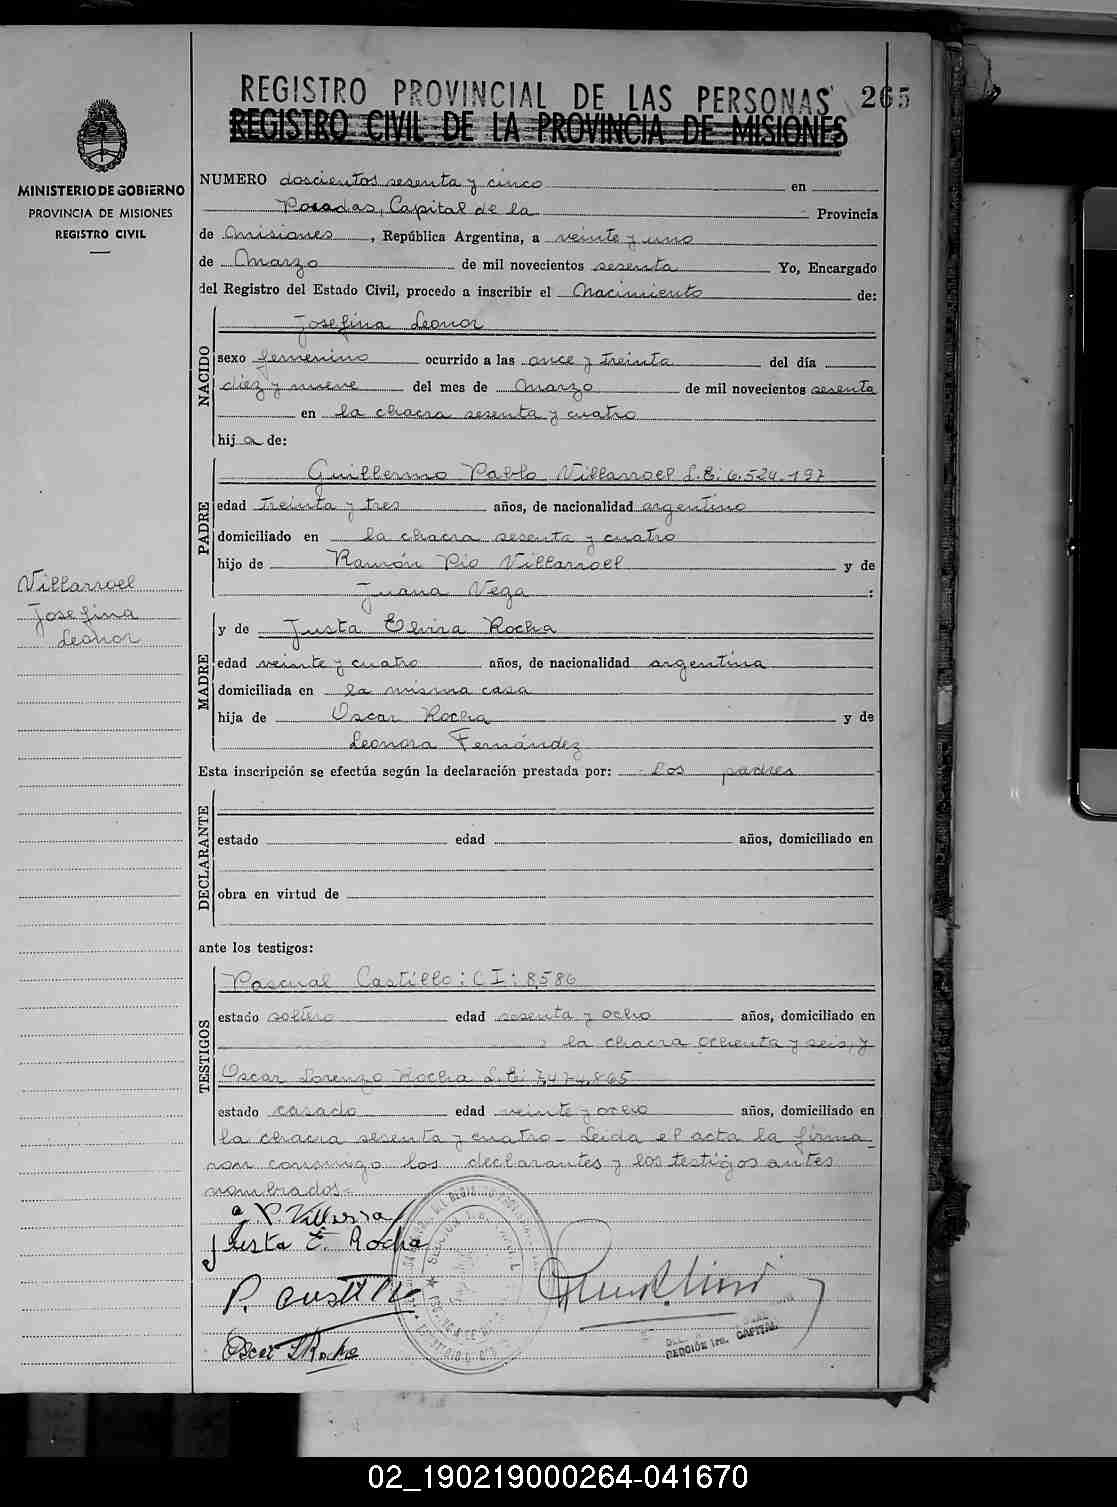 REGISTRO PROVINCIAL DE LAS PERSONAS 265
REGISTRO CIVIL DE LA PROVINCIA DE MISIONES
MINISTERIO DE GOBIERNO
PROVINCIA DE MISIONES
REGISTRO CIVIL
NUMERO doscientos sesenta y cinco en
Posadas, Capital de la Provincia
de Misiones, República Argentina, a veinte y uno
de Marzo de mil novecientos sesenta Yo, Encargado
del Registro del Estado Civil, procedo a inscribir el Nacimiento de:
NACIDO
Josefina Leonor
sexo femenino ocurrido a las once y treinta del día
diez y nueve del mes de Marzo de mil novecientos sesenta
en la chacra sesenta y cuatro
hij a de:
PADRE
Guillermo Pablo Villarroel L.E: 6.524.197
edad treinta y tres años, de nacionalidad argentino
domiciliado en la chacra sesenta y cuatro
hijo de Ramón Pío Villarroel y de
Juana Vega :
Villarroel
Josefina
Leonor
MADRE
y de Justa Elvira Rocha
edad veinte y cuatro años, de nacionalidad argentina
domiciliada en la misma casa
hija de Oscar Rocha y de
Leonora Fernández
Esta inscripción se efectúa según la declaración prestada por: los padres
DECLARANTE
estado edad años, domiciliado en
obra en virtud de
ante los testigos:
TESTIGOS
Pascual Castillo: C I: 8,586
estado soltero edad sesenta y ocho años, domiciliado en
la chacra ochenta y seis, y
Oscar Lorenzo Rocha L.E: 7,474,865
estado casado edad veinte y ocho años, domiciliado en
la chacra sesenta y cuatro- Leida el acta la firma
ron conmigo los declarantes y los testigos antes
nombrados-
Justa E. Rocha
P. Castillo
Oscar L Rocha
SECCIÓN 1ra. CAPITAL
02_190219000264-041670